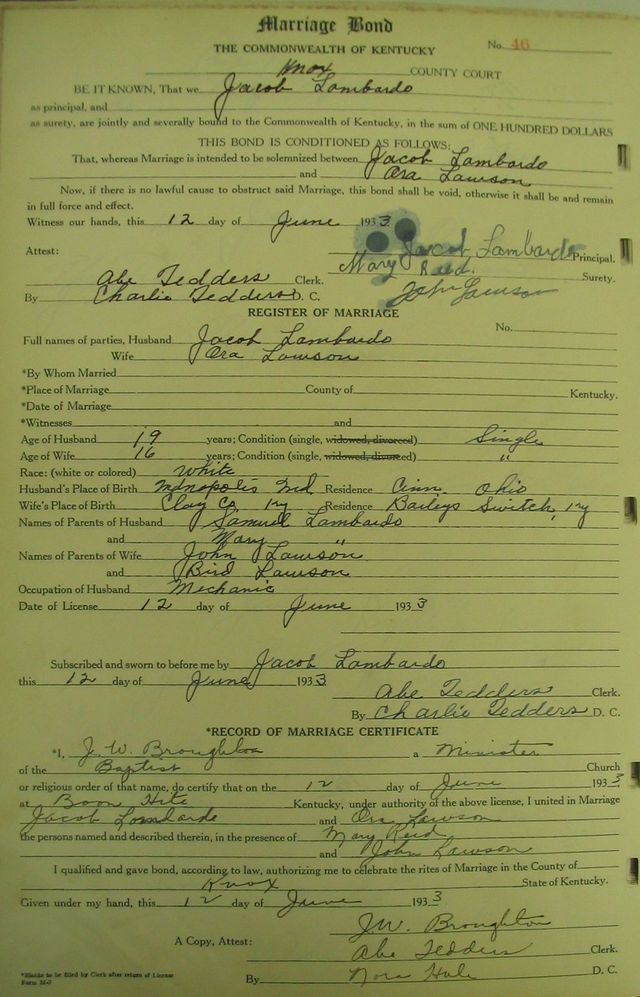 Marriage Bond
THE COMMONWEALTH OF KENTUCKY
No. 46
Knox COUNTY COURT
BE IT KNOWN, That we Jacob Lombardo
as principal, and
as surety, are jointly and severally bound to the Commonwealth of Kentucky, in the sum of ONE HUNDRED DOLLARS
THIS BOND IS CONDITIONED AS FOLLOWS:
That, whereas Marriage is intended to be solemnized between Jacob Lombardo
and Ora Lawson
Now, if there is no lawful cause to obstruct said Marriage, this bond shall be void, otherwise it shall be and remain
in full force and effect.
Witness our hands, this 12 day of June 1933
Attest: Jacob Lombardo Principal.
Mary Reed. Surety.
Abe Tedders Clerk.
By Charlie Tedders D. C. John Lawson
REGISTER OF MARRIAGE
No.
Full names of parties, Husband Jacob Lombardo
Wife Ora Lawson
*By Whom Married
*Place of Marriage County of Kentucky.
*Date of Marriage
*Witnesses and
Age of Husband 19 years; Condition (single, widowed, divorced) Single
Age of Wife 16 years; Condition (single, widowed, divorced) "
Race: (white or colored) White
Husband's Place of Birth Ind Residence Cinn, Ohio
Wife's Place of Birth Clay Co, Ky Residence Baileys Switch, Ky
Names of Parents of Husband Samuel Lombardo
and Mary "
Names of Parents of Wife John Lawson
and Bird Lawson
Occupation of Husband Mechanic
Date of License 12 day of June 1933
Subscribed and sworn to before me by Jacob Lombardo
this 12 day of June 1933
Abe Tedders Clerk.
By Charlie Tedders D. C.
*RECORD OF MARRIAGE CERTIFICATE
*I, J. W. Broughton a Minister
of the Baptist Church
or religious order of that name, do certify that on the 12 day of June 1933
at Boon Hite Kentucky, under authority of the above license, I united in Marriage
Jacob Lombardo and Ora Lawson
the persons named and described therein, in the presence of Mary Reid
and John Lawson
I qualified and gave bond, according to law, authorizing me to celebrate the rites of Marriage in the County of
Knox State of Kentucky.
Given under my hand, this 12 day of June 1933
J.W. Broughton
A Copy, Attest: Abe Tedders Clerk.
By Nora Hale D. C.
*Blanks to be filed by Clerk after return of License